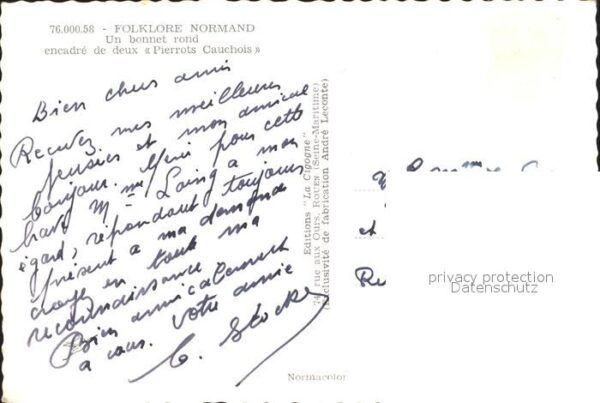 76.000.58 - FOLKLORE NORMAND
Un bonnet rond
encadré de deux « Pierrots Cauchois »
Bien chers amis
Recevez mes meilleures
pensées et mon amical
bonjour. Merci pour cette
Mme à mon
égard, répondant toujours
présent à ma demande
en toute ma
reconnaissance
Bien amicalement
à vous. Votre amie
Editions "La Cigogne"
74, rue aux Ours, ROUEN (Seine-Maritime)
(Exclusivité de fabrication André Leconte)
et
Normacolor
privacy protection
Datenschutz